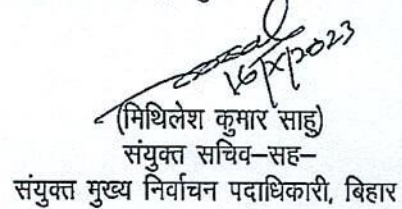 16/X/2023
(मिथिलेश कुमार साहू)
संयुक्त सचिव–सह–
संयुक्त मुख्य निर्वाचन पदाधिकारी, बिहार